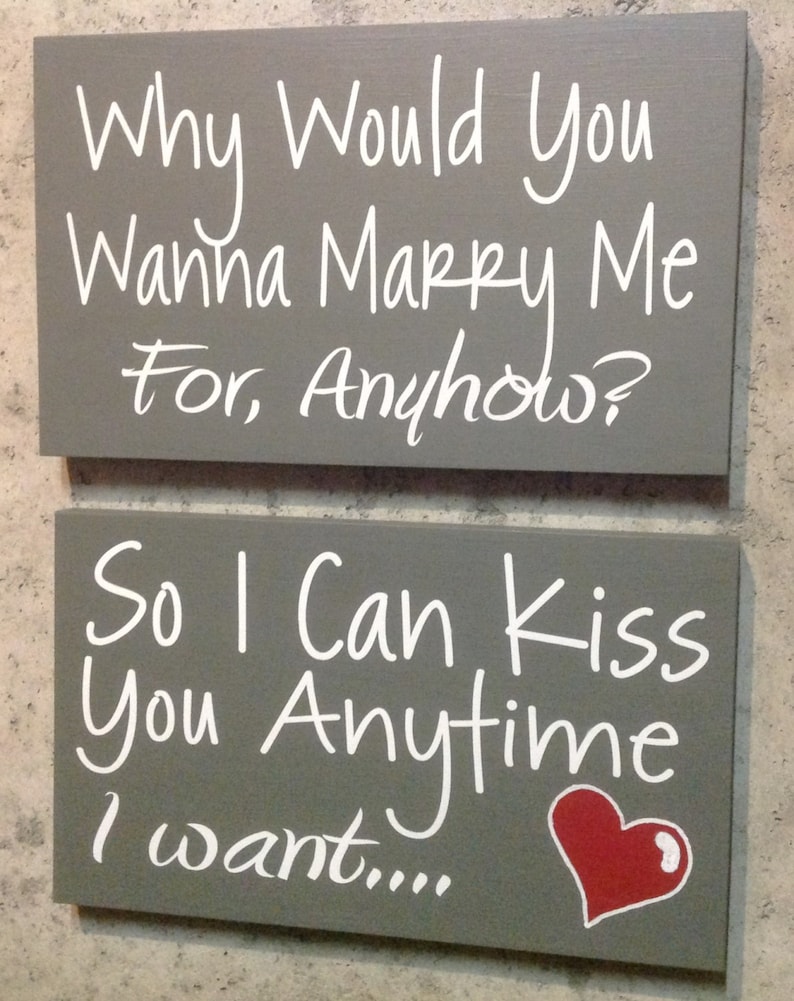 Why Would You
Wanna Marry Me
For, Anyhow?
So I Can Kiss
You Anytime
I want....